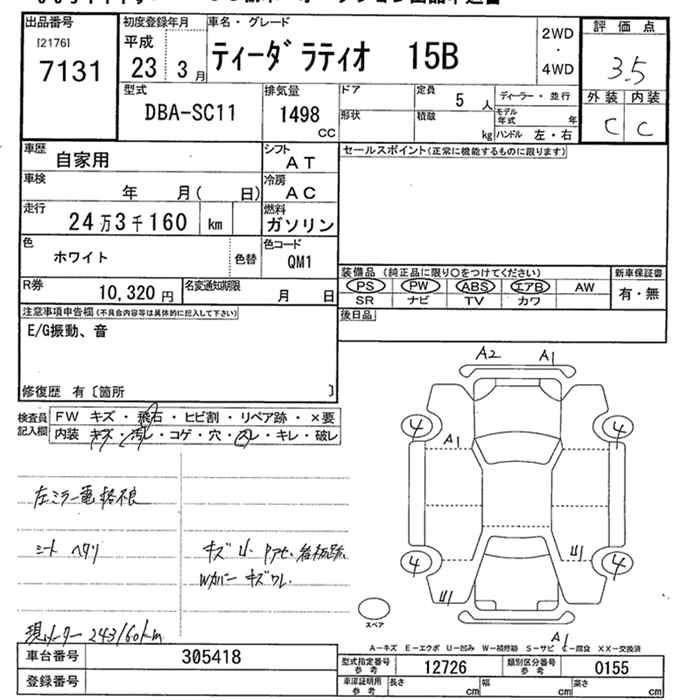 出品番号
[2176]
7131
初度登録年月
平成
23 3月
車名・グレード
ティーダ ラティオ 15B
2WD
・
4WD
評価点
3.5
外装 内装
C C
型式
DBA-SC11
排気量
1498
cc
ドア
形状
定員
5 人
積載
kg
ディーラー・並行
モデル年式 年
ハンドル 左・右
車歴
自家用
シフト
AT
セールスポイント(正常に機能するものに限ります)
車検
年 月( 日)
冷房
AC
走行
24万3千160 km
燃料
ガソリン
色
ホワイト
色替
色コード
QM1
装備品(純正品に限り○をつけてください)
PS PW ABS エアB AW
SR ナビ TV カワ
新車保証書
有・無
R券
10,320円
名変通知期限
月 日
後日品
注意事項申告欄(不具合内容等は具体的に記入して下さい)
E/G振動、音
修復歴 有〔箇所 〕
検査員記入欄
FW キズ・飛石・ヒビ割・リペア跡・×要
内装 キズ・汚レ・コゲ・穴・スレ・キレ・破レ
A2 A1
4 4
A1
4 4
A1
左ミラー電格不良
シート ヘタリ
キズ
Wカバー キズワレ
現メーター 243160km
スペア
A-キズ E-エクボ U-凹み W-補修跡 S-サビ C-腐食 XX-交換済
車台番号 305418
登録番号
型式指定番号参考 12726
類別区分番号参考 0155
車庫証明用参考 長さ cm 幅 cm 高さ cm